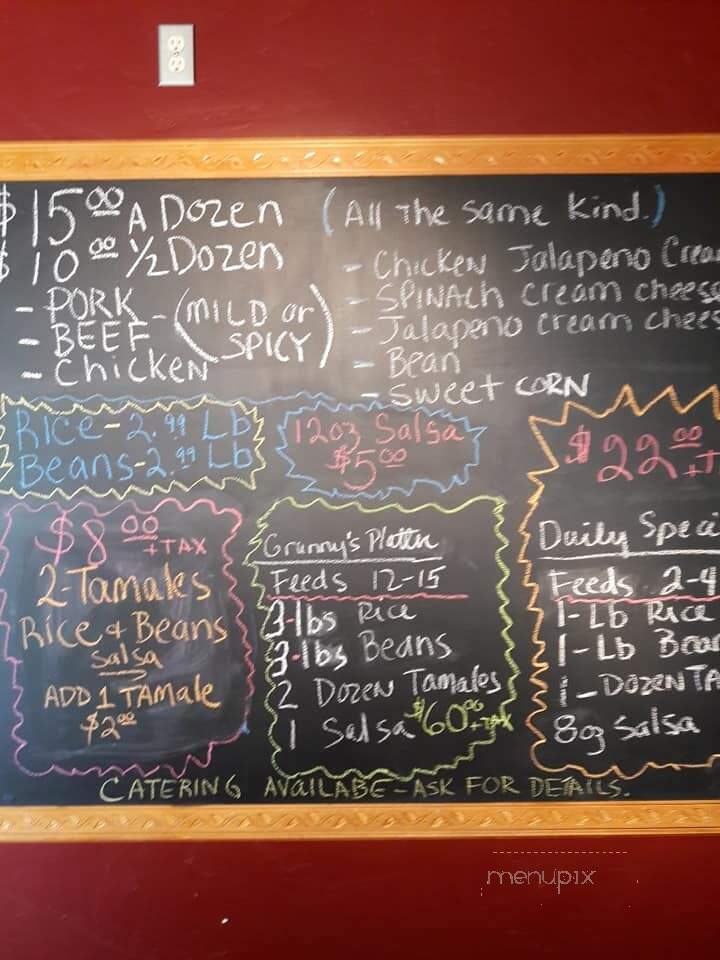 $15.00 A Dozen (All The same kind.)
$10.00 ½ Dozen
- PORK - (MILD or
- BEEF SPICY)
- Chicken
- Chicken Jalapeno Crea
- SPINAch cream cheese
- Jalapeno cream chees
- Bean
- Sweet CORN
Rice - 2.99 Lb
Beans - 2.99 Lb
12oz Salsa
$5.00
$8.00
+TAX
2-Tamales
Rice & Beans
Salsa
ADD 1 TAmale
$2.00
Granny's Platter
Feeds 12-15
3-lbs Rice
3-lbs Beans
2 Dozen Tamales
1 Salsa $60.00 +TAX
$22.00
+T
Daily Speci
Feeds 2-4
1-Lb Rice
1-Lb Bean
1-DOZEN TA
8oz Salsa
CATERING AVAILABE - ASK FOR DETAILS.
menupix